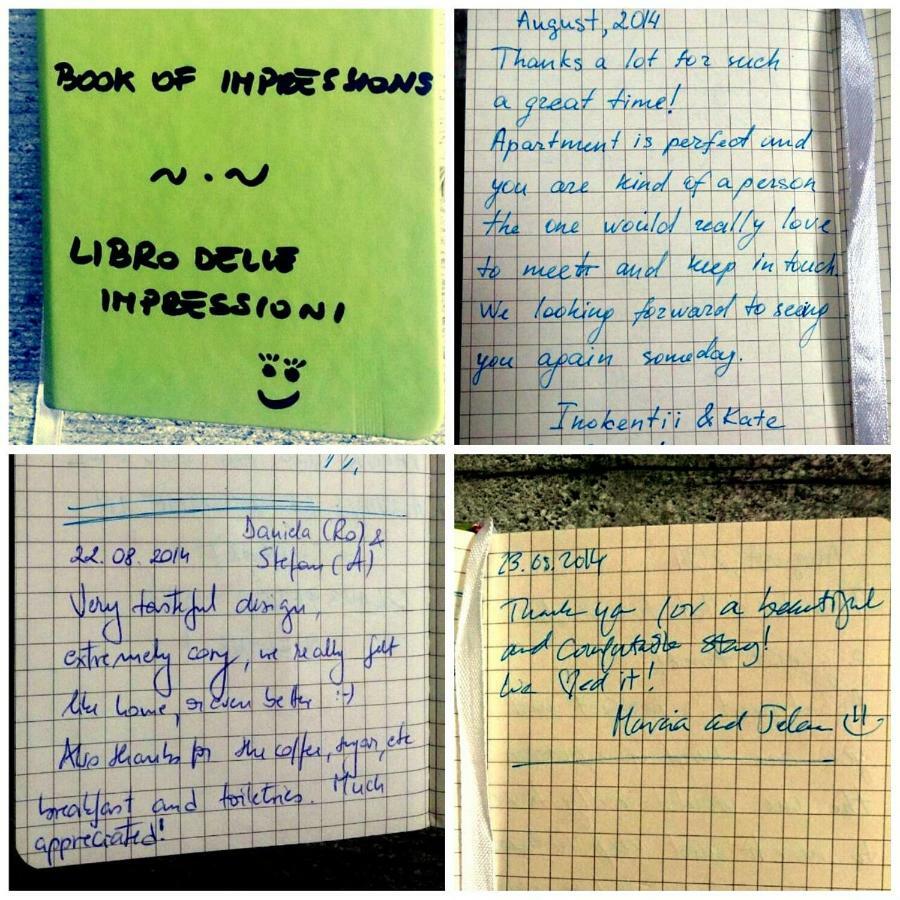 BOOK OF IMPRESSIONS
~ . ~
LIBRO DELLE
IMPRESSIONI
August, 2014
Thanks a lot for such
a great time!
Apartment is perfect and
you are kind of a person
the one would really love
to meet and keep in touch.
We looking forward to seeing
you again someday.
Inokentii & Kate
Daniela (Ro) &
22.08.2014 Stefan (A)
Very tasteful design,
extremely cozy, we really felt
like home, or even better :-)
Also thanks for the coffee, sugar, etc
breakfast and toiletries. Much
appreciated!
23.08.2014
Thank you for a beautiful
and comfortable stay!
We ♡ed it!
Marcia and